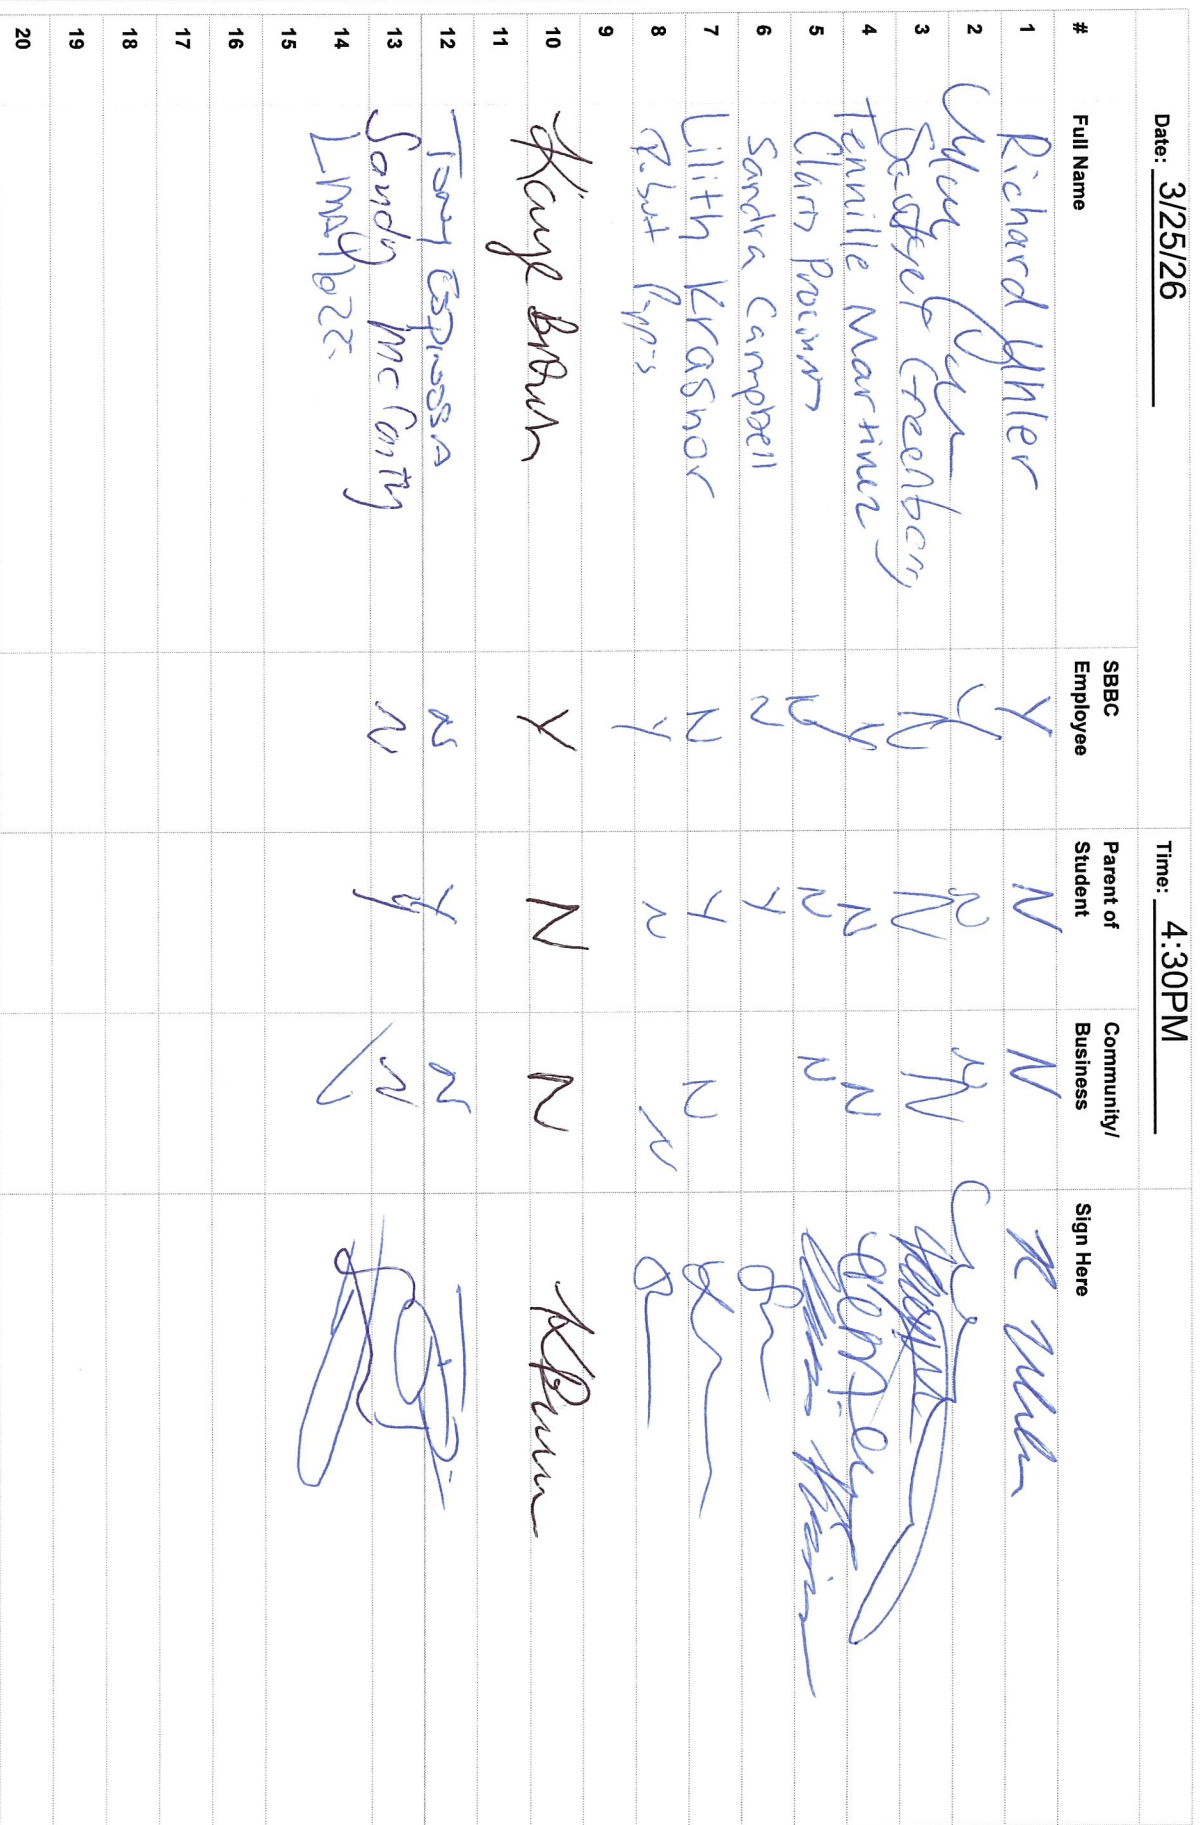 Date: 3/25/26 Time: 4:30PM
# Full Name SBBC Employee Parent of Student Community/ Business Sign Here
1 Richard Uhler Y N N R Uhler
2 Y N N
3 Greenberg N N N
4 Tennille Martinez Y N N
5 N N N
6 Sandra Campbell N Y
7 Lilith Krasnor N Y N
8 Robert Y N N
9
10 Kaye Brown Y N N KBrown
11
12 Tony Espinosa N Y N
13 Sandy McCarthy N Y N
14
15
16
17
18
19
20